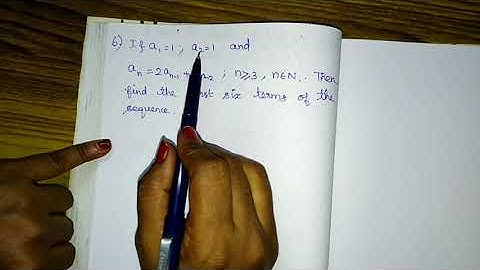 6) If a₁=1 ; a₂=1 and
aₙ = 2aₙ₋₁ + ; n≥3, n∈N. Then
find the six terms of the
sequence.